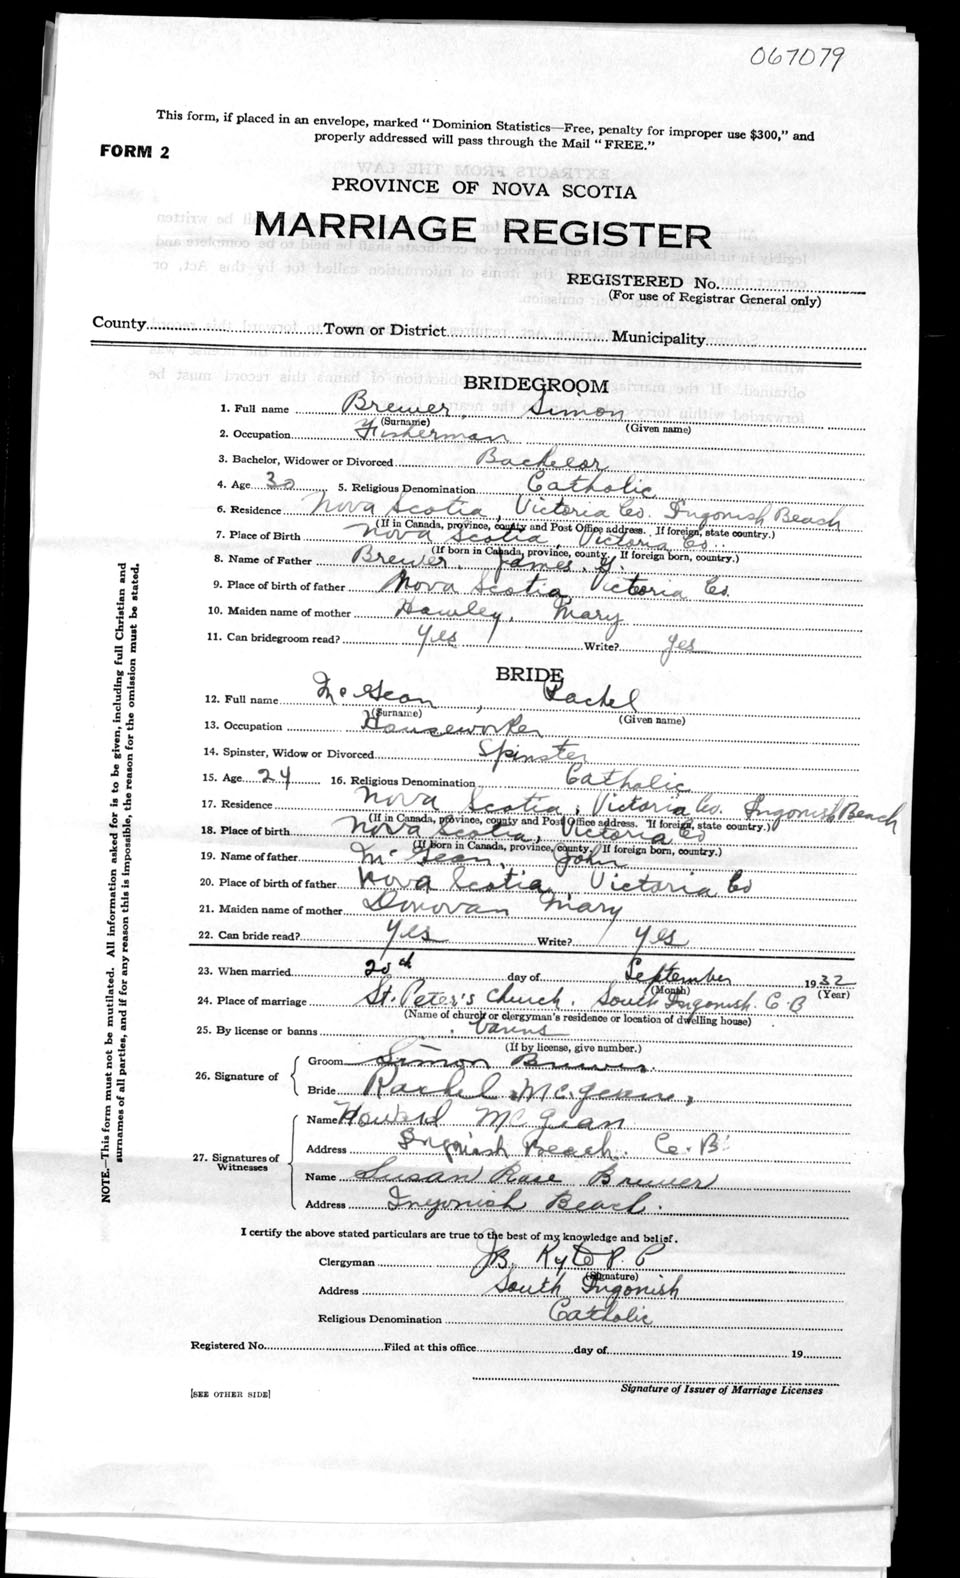 067079
This form, if placed in an envelope, marked "Dominion Statistics—Free, penalty for improper use $300," and
properly addressed will pass through the Mail "FREE."
FORM 2
PROVINCE OF NOVA SCOTIA
MARRIAGE REGISTER
REGISTERED No.
(For use of Registrar General only)
County Town or District Municipality
BRIDEGROOM
1. Full name Brewer, Simon
(Surname) (Given name)
2. Occupation Fisherman
3. Bachelor, Widower or Divorced Bachelor
4. Age 30 5. Religious Denomination Catholic
6. Residence Nova Scotia, Victoria Co. Ingonish Beach
(If in Canada, province, county and Post Office address. If foreign, state country.)
7. Place of Birth Nova Scotia, Victoria Co.
(If born in Canada, province, county. If foreign born, country.)
8. Name of Father Brewer, James. Y.
9. Place of birth of father Nova Scotia, Victoria Co.
10. Maiden name of mother Hawley, Mary
11. Can bridegroom read? Yes Write? yes
BRIDE
12. Full name McGean, Rachel
(Surname) (Given name)
13. Occupation Houseworker
14. Spinster, Widow or Divorced Spinster
15. Age 24 16. Religious Denomination Catholic
17. Residence Nova Scotia, Victoria Co. Ingonish Beach
(If in Canada, province, county and Post Office address. If foreign, state country.)
18. Place of birth Nova Scotia, Victoria Co
(If born in Canada, province, county. If foreign born, country.)
19. Name of father McGean, John
20. Place of birth of father Nova Scotia, Victoria Co
21. Maiden name of mother Donovan Mary
22. Can bride read? Yes Write? yes
23. When married 20th day of September 1932
(Month) (Year)
24. Place of marriage St. Peter's Church. South Ingonish. C.B
(Name of church or clergyman's residence or location of dwelling house)
25. By license or banns banns
(If by license, give number.)
26. Signature of
Groom Simon Brewer.
Bride Rachel McGean,
27. Signatures of Witnesses
Name Howard McGean
Address Ingonish Beach. C.B.
Name Susan Rose Brewer
Address Ingonish Beach.
I certify the above stated particulars are true to the best of my knowledge and belief.
Clergyman JB. Kyte P.P
(Signature)
Address South Ingonish
Religious Denomination Catholic
Registered No. Filed at this office day of 19
Signature of Issuer of Marriage Licenses
[SEE OTHER SIDE]
NOTE.—This form must not be mutilated. All information asked for is to be given, including full Christian and
surnames of all parties, and if for any reason this is impossible, the reason for the omission must be stated.